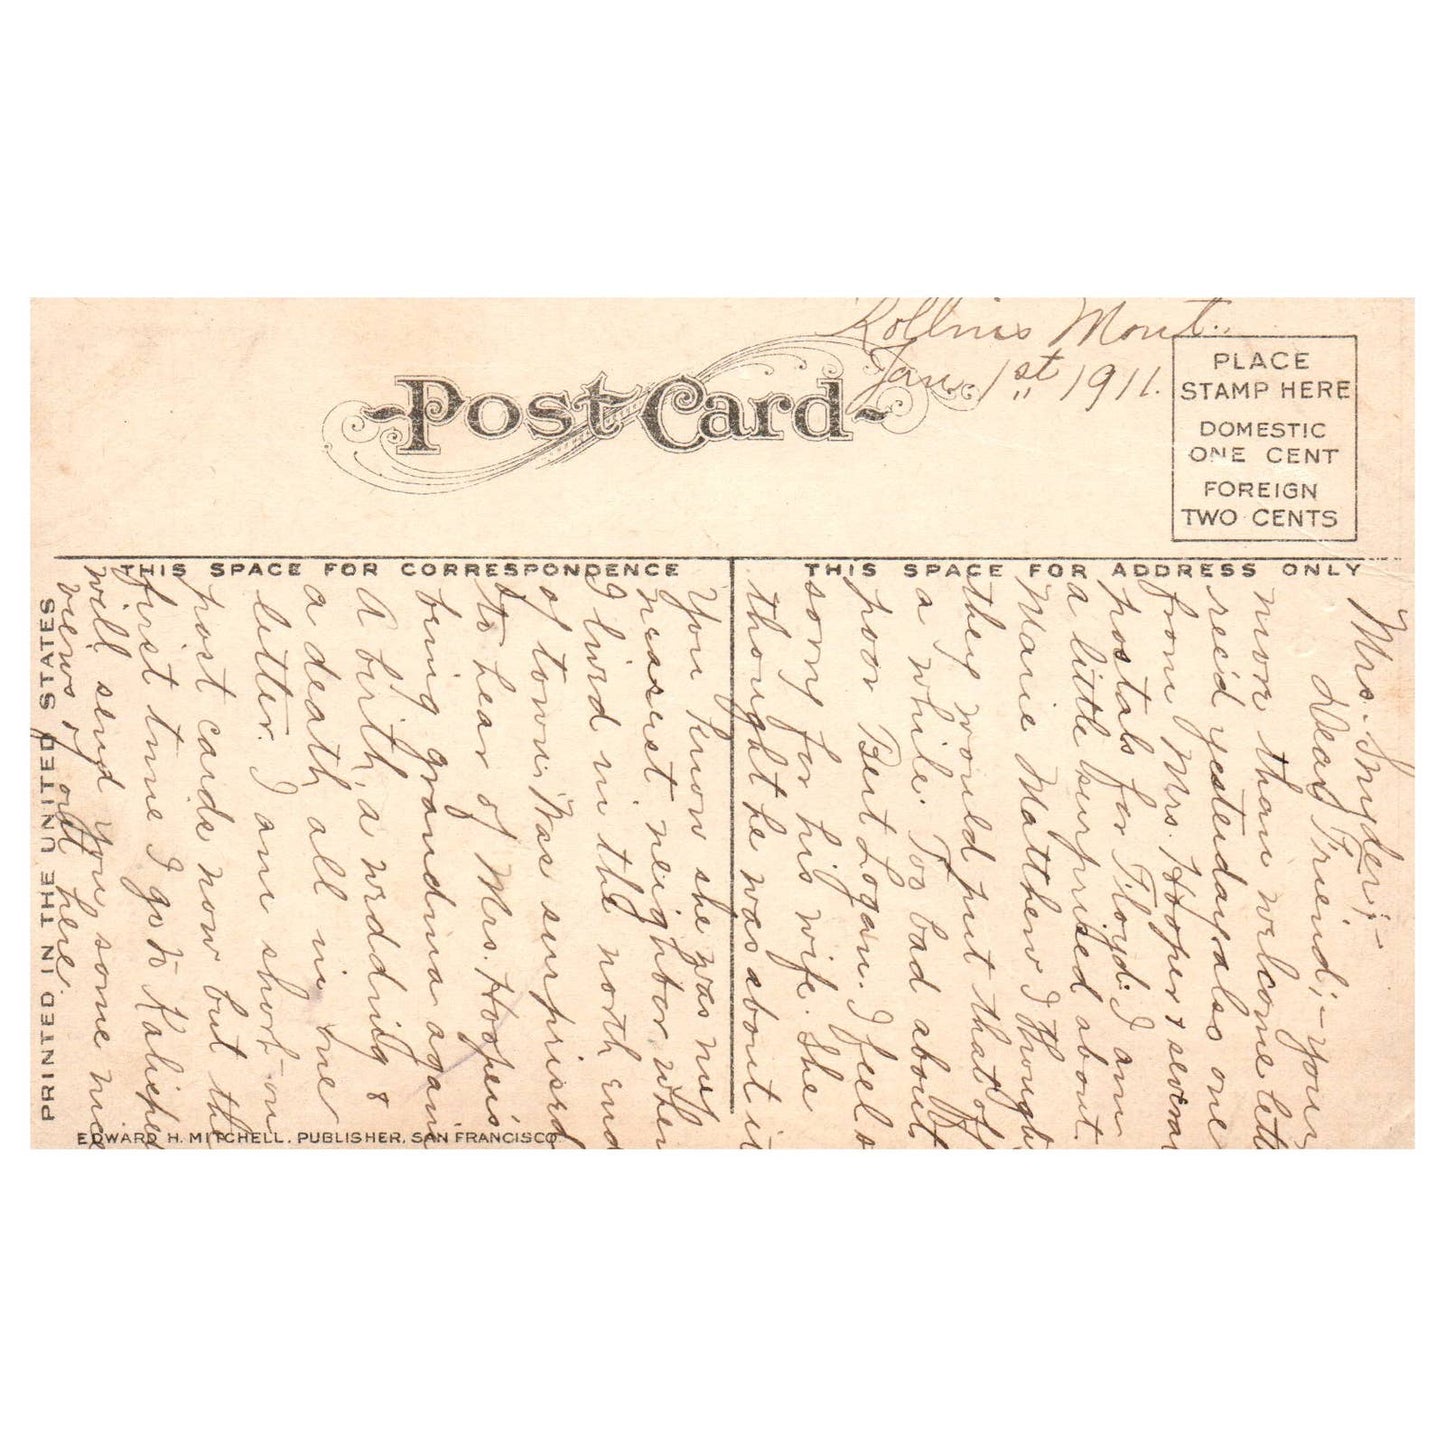 Rollins Mont.
Jan. 1st 1911.
Post Card
PLACE
STAMP HERE
DOMESTIC
ONE CENT
FOREIGN
TWO CENTS
THIS SPACE FOR CORRESPONDENCE
THIS SPACE FOR ADDRESS ONLY
Mrs. Snyder;-
Dear Friend;- your
more than welcome lett
rec'd yesterday, also one
from Mrs. Hooper & several
postals for Floyd. I am
a little surprised about
Marie Matthew I thought
they would put that off
a while. Too bad about
poor Bert Logan. I feel so
sorry for his wife. She
thought he was about it
You know she was my
nearest neighbor when
I lived in the north end
of town. Was surprised
to hear of Mrs. Hooper's
being grandma again
A birth, a wedding &
a death all in one
letter. I am short on
post cards now but the
first time I go to Kalispel
will send you some nice
views of out here.
PRINTED IN THE UNITED STATES
EDWARD H. MITCHELL, PUBLISHER, SAN FRANCISCO